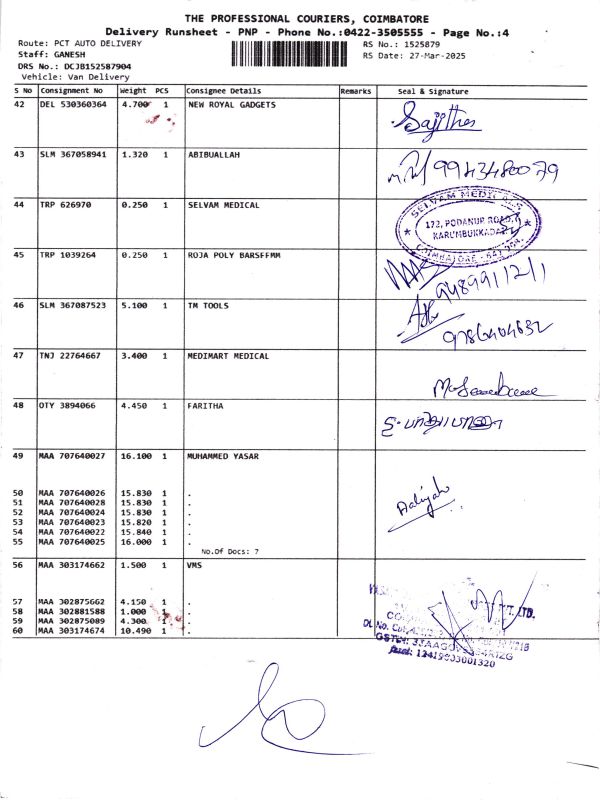 THE PROFESSIONAL COURIERS, COIMBATORE
Delivery Runsheet - PNP - Phone No.:0422-3505555 - Page No.:4
Route: PCT AUTO DELIVERY RS No.: 1525879
Staff: GANESH RS Date: 27-Mar-2025
DRS No.: DCJB152587904
Vehicle: Van Delivery
S No Consignment No Weight PCS Consignee Details Remarks Seal & Signature
42 DEL 530360364 4.700 1 NEW ROYAL GADGETS
43 SLM 367058941 1.320 1 ABIBUALLAH 9943480079
44 TRP 626970 0.250 1 SELVAM MEDICAL
SELVAM MEDICALS
172, PODANUR ROAD,
COIMBATORE
45 TRP 1039264 0.250 1 ROJA POLY BARSFFMM
9489911211
46 SLM 367087523 5.100 1 TM TOOLS
9786404632
47 TNJ 22764667 3.400 1 MEDIMART MEDICAL
48 OTY 3894066 4.450 1 FARITHA
49 MAA 707640027 16.100 1 MUHAMMED YASAR
50 MAA 707640026 15.830 1 .
51 MAA 707640028 15.830 1 .
52 MAA 707640024 15.830 1 .
53 MAA 707640023 15.820 1 .
54 MAA 707640022 15.840 1 .
55 MAA 707640025 16.000 1 .
No.Of Docs: 7
56 MAA 303174662 1.500 1 VMS
57 MAA 302875662 4.150 1 .
58 MAA 302881588 1.000 1 .
59 MAA 302875089 4.300 1 .
60 MAA 303174674 10.490 1 .